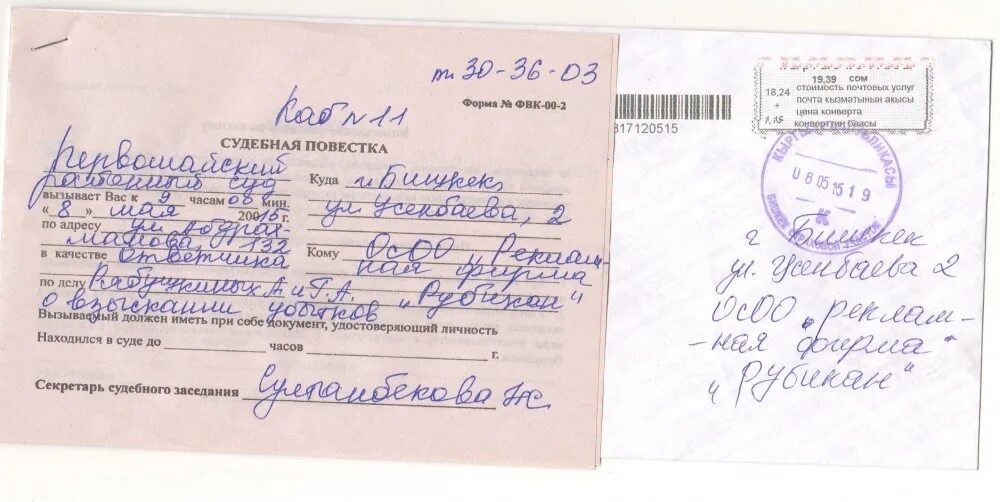 т. 30-36-03
Форма № ФВК-00-2
Каб № 11
СУДЕБНАЯ ПОВЕСТКА
Первомайский
районный суд
вызывает Вас к 9 часам 00 мин.
" 8 " мая 20015 г.
по адресу ул. Абдрах-
манова, 132
в качестве ответчика
по делу Рябушкиных А. и Г.А.
о взыскании убытков
Куда г. Бишкек
ул. Усенбаева, 2
Кому ОсОО „Реклам-
ная фирма
„Рубикан"
Вызываемый должен иметь при себе документ, удостоверяющий личность
Находился в суде до часов г.
Секретарь судебного заседания Султанбекова Ж
817120515
19,39 сом
18,24 стоимость почтовых услуг
+ почта кызматынын акысы
1,15 цена конверта
конверттин баасы
08 05 15 19
К
г Бишкек
ул. Усенбаева 2
ОсОО „реклам-
-ная фирма
„Рубикан"